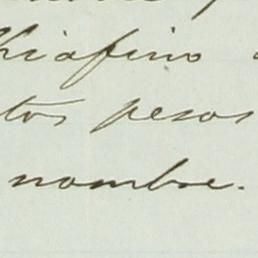 Chiafino
tos pesos
nombre.